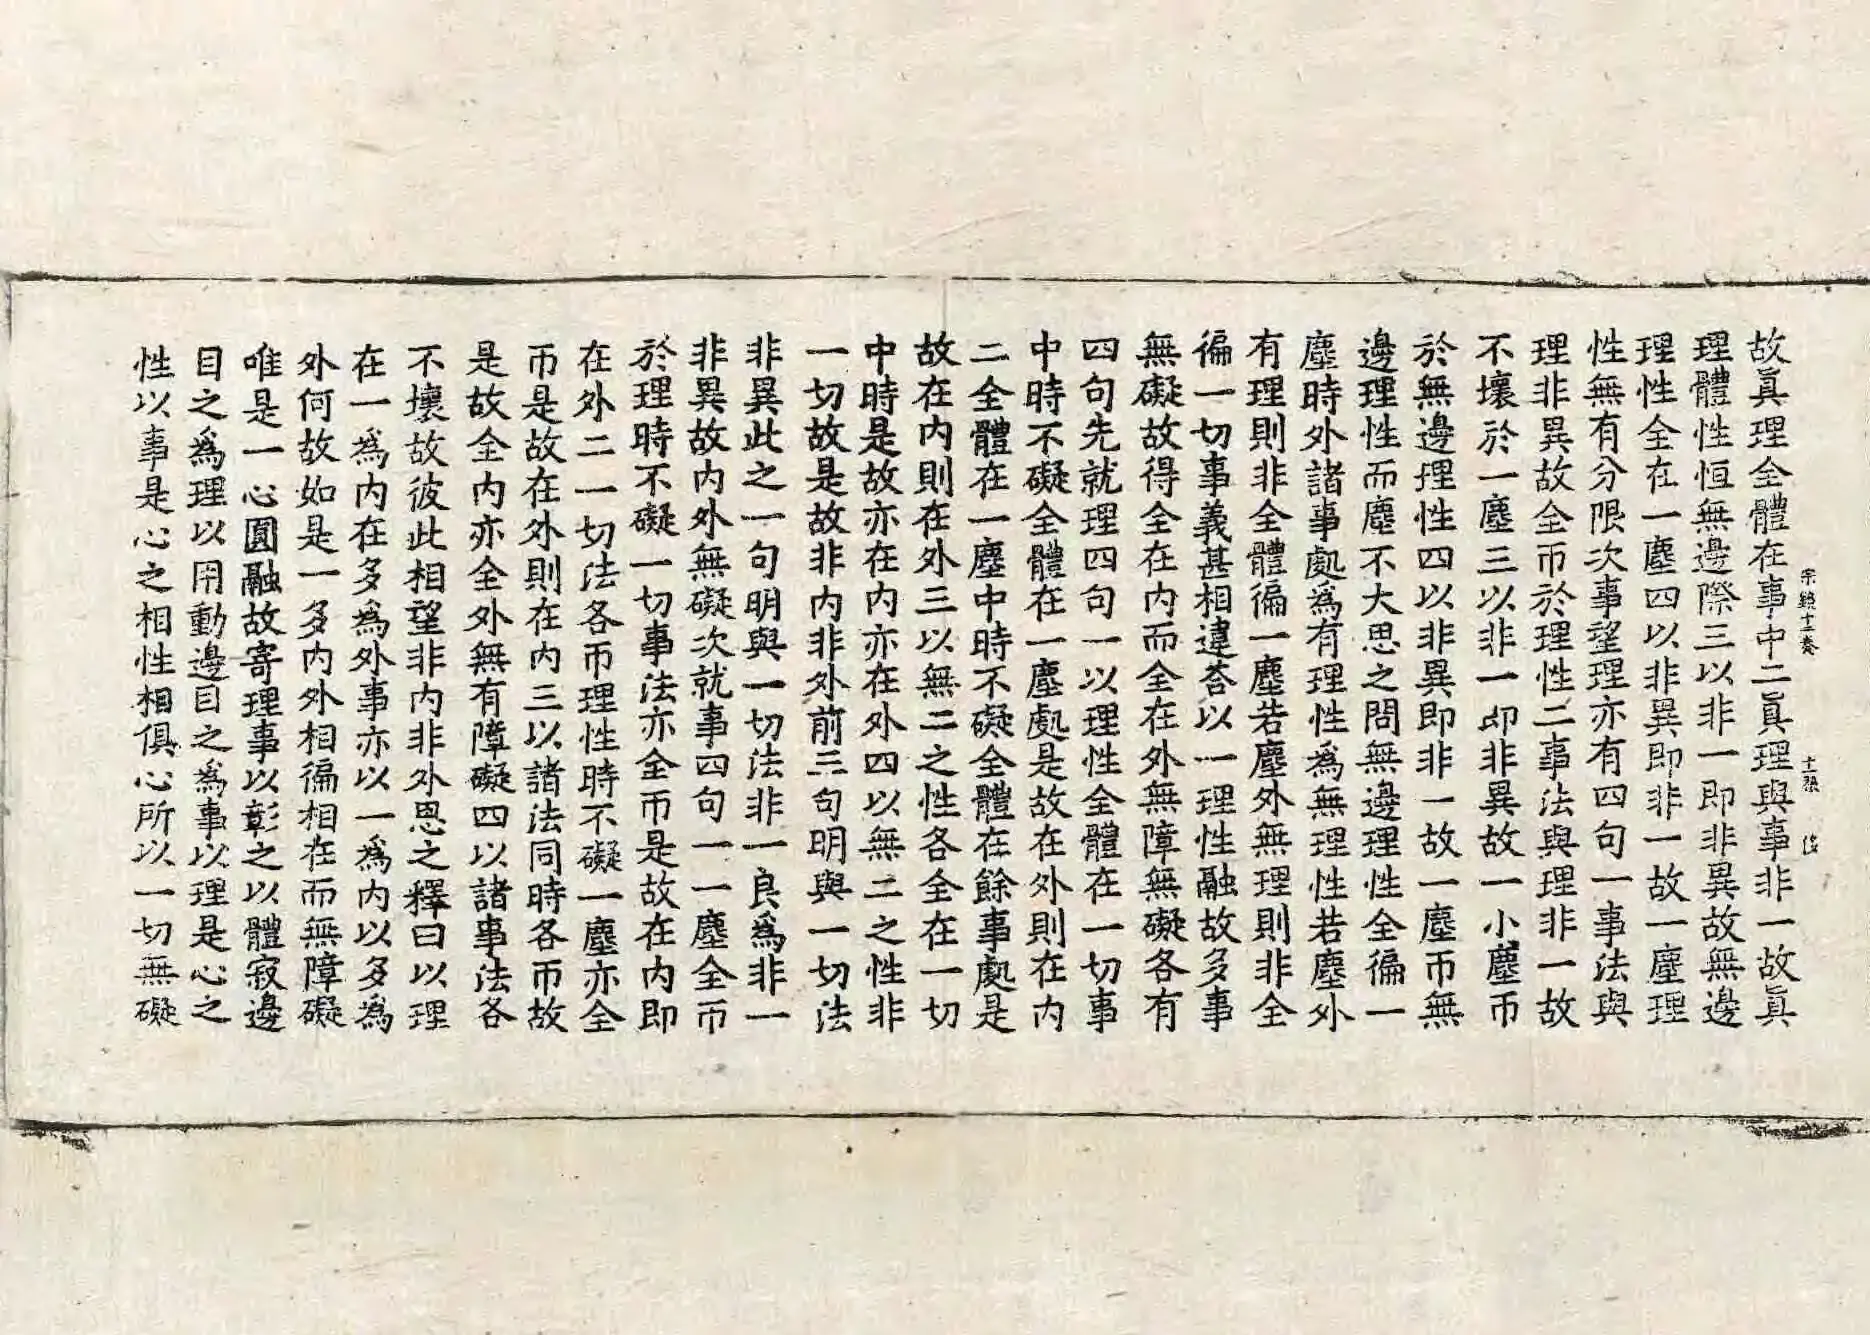 宗鏡十二卷 十二張 俊
故眞理全體在事中二眞理與事非一故眞
理體性恒無邊際三以非一即非異故無邊
理性全在一塵四以非異即非一故一塵理
性無有分限次事望理亦有四句一事法與
理非異故全帀於理性二事法與理非一故
不壞於一塵三以非一即非異故一小塵帀
於無邊理性四以非異即非一故一塵帀無
邊理性而塵不大思之問無邊理性全徧一
塵時外諸事處爲有理性爲無理性若塵外
有理則非全體徧一塵若塵外無理則非全
徧一切事義甚相違荅以一理性融故多事
無礙故得全在內而全在外無障無礙各有
四句先就理四句一以理性全體在一切事
中時不礙全體在一塵處是故在外則在內
二全體在一塵中時不礙全體在餘事處是
故在內則在外三以無二之性各全在一切
中時是故亦在內亦在外四以無二之性非
一切故是故非內非外前三句明與一切法
非異此之一句明與一切法非一良爲非一
非異故內外無礙次就事四句一一塵全帀
於理時不礙一切事法亦全帀是故在內即
在外二一切法各帀理性時不礙一塵亦全
帀是故在外則在內三以諸法同時各帀故
是故全內亦全外無有障礙四以諸事法各
不壞故彼此相望非內非外思之釋曰以理
在一爲內在多爲外事亦以一爲內以多爲
外何故如是一多內外相徧相在而無障礙
唯是一心圓融故寄理事以彰之以體寂邊
目之爲理以用動邊目之爲事以理是心之
性以事是心之相性相俱心所以一切無礙